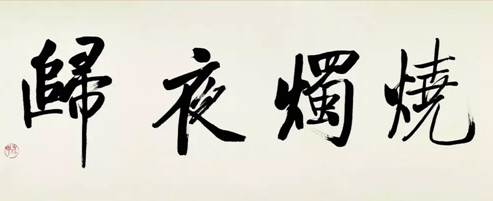 燒燭夜歸